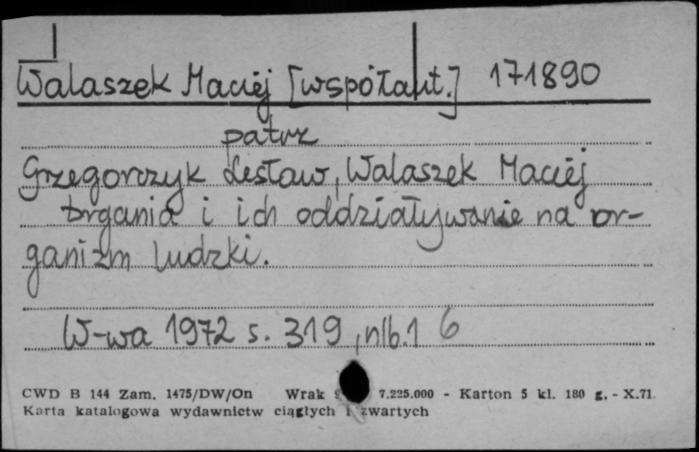 Walaszek Maciej [współaut.] 171890
patrz
Grzegorczyk Lesław, Walaszek Maciej
Drgania i ich oddziaływanie na or-
ganizm ludzki.
W-wa 1972 s. 319, nlb. 1 6
CWD B 144 Zam. 1475/DW/On Wrak 7.225.000 - Karton 5 kl. 180 g. - X.71.
Karta katalogowa wydawnictw ciągłych i zwartych